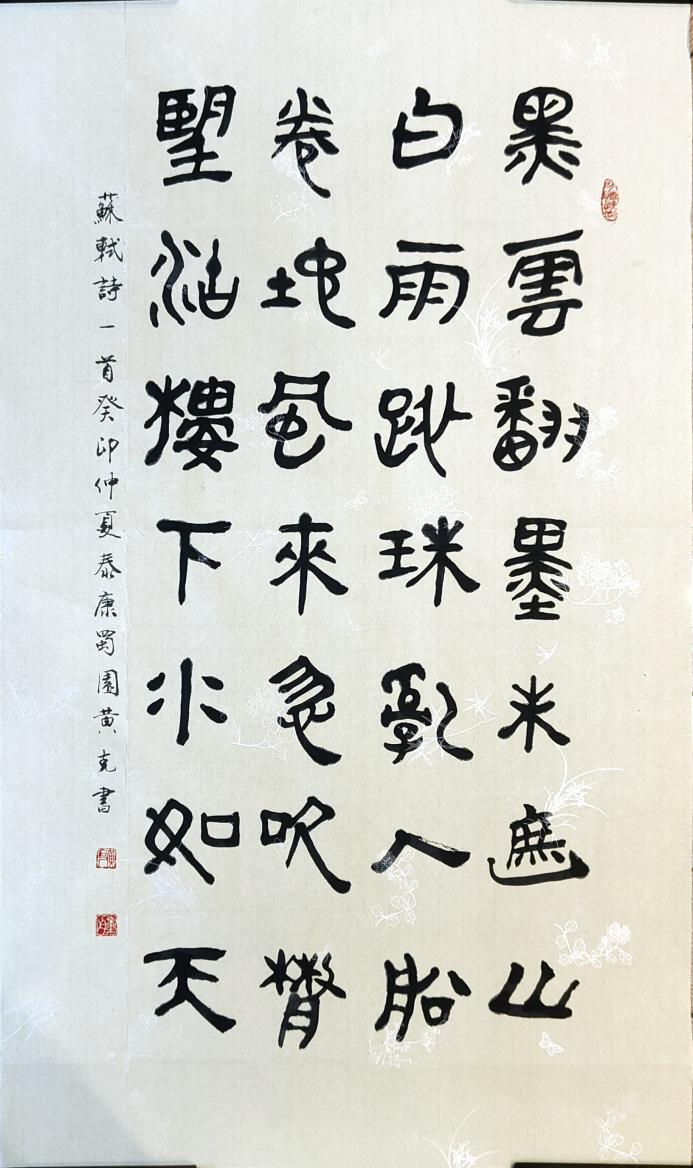 黑雲翻墨未遮山
白雨跳珠亂入船
卷地風來忽吹散
朢湖樓下水如天
蘇軾詩一首癸卯仲夏泰康蜀園黄克書